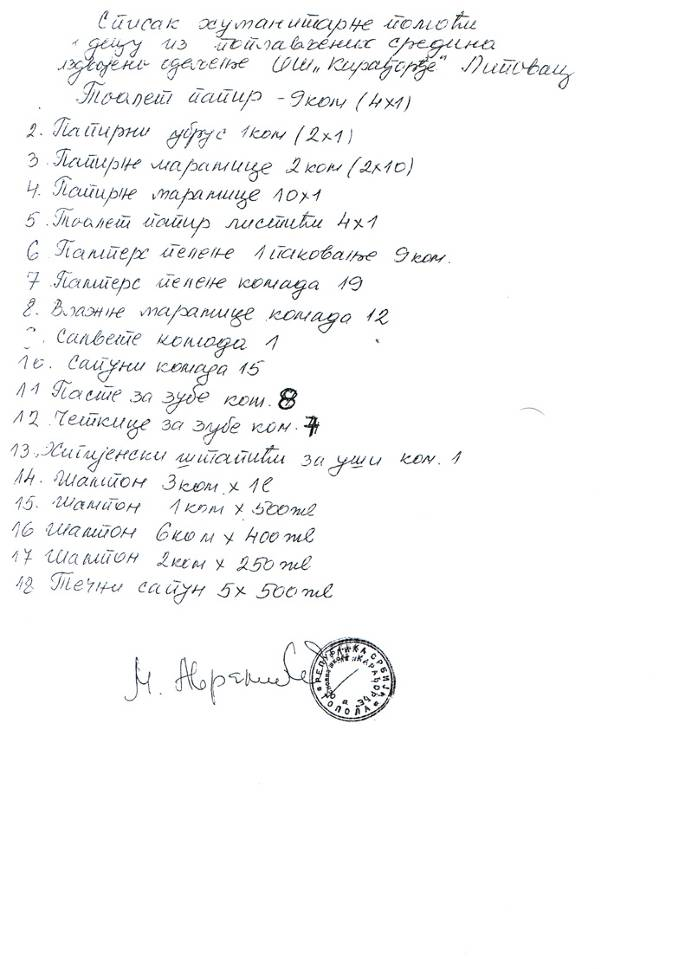 Списак хуманитарне помоћи
децу из поплављених средина
издвојено одељење ОШ „Карађорђе“ Липовац
Тоалет папир - 9 ком (4x1)
2. Папирни убрус 1 ком (2x1)
3. Папирне марамице 2 ком (2x10)
4. Папирне марамице 10x1
5. Тоалет папир листићи 4x1
6 Памперс пелене 1 паковање 9 ком.
7 Памперс пелене комада 19
8. Влажне марамице комада 12
9. Салвете комада 1
10. Сапуни комада 15
11 Пасте за зубе ком. 8
12 Четкице за зубе ком. 7
13. Хигијенски штапићи за уши ком. 1
14. Шампон 3 ком x 1l
15. Шампон 1 ком x 500 мл
16 Шампон 6 ком x 400 мл
17 Шампон 2 ком x 250 мл
18 Течни сапун 5x 500 мл
М.
РЕПУБЛИКА СРБИЈА
КАРАЂОРЂЕ
ТОПОЛА